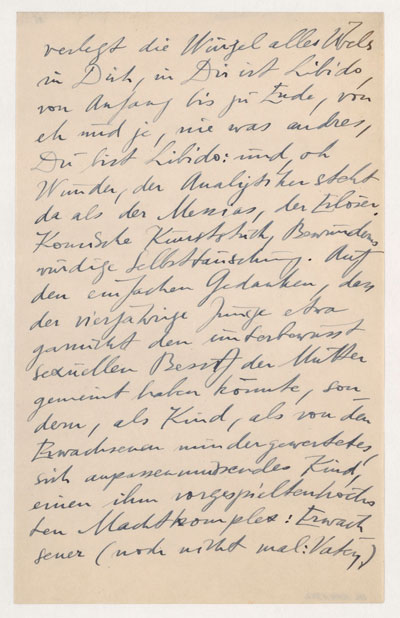 verlegt die Wurzel alles Übels
in Dich, in Dir ist Libido,
von Anfang bis zu Ende, von
eh und je, nie was andres,
Du bist Libido: und, oh
Wunder, der Analytiker steht
da als der Messias, der Erlöser.
Komische Kunststück, Bewunderns
würdige Selbsttäuschung. Auf
den einfachen Gedanken, dass
der vierjährige Junge etwa
garnicht den unterbewusst
sexuellen Besitz der Mutter
gemeint haben könnte, son
dern, als Kind, als von den
Erwachsenen mindergewertetes,
sich anpassenmüssendes Kind,
einen ihm vorgespielten höchs
ten Machtkomplex: Erwach
sener (noch nicht mal: Vater,)